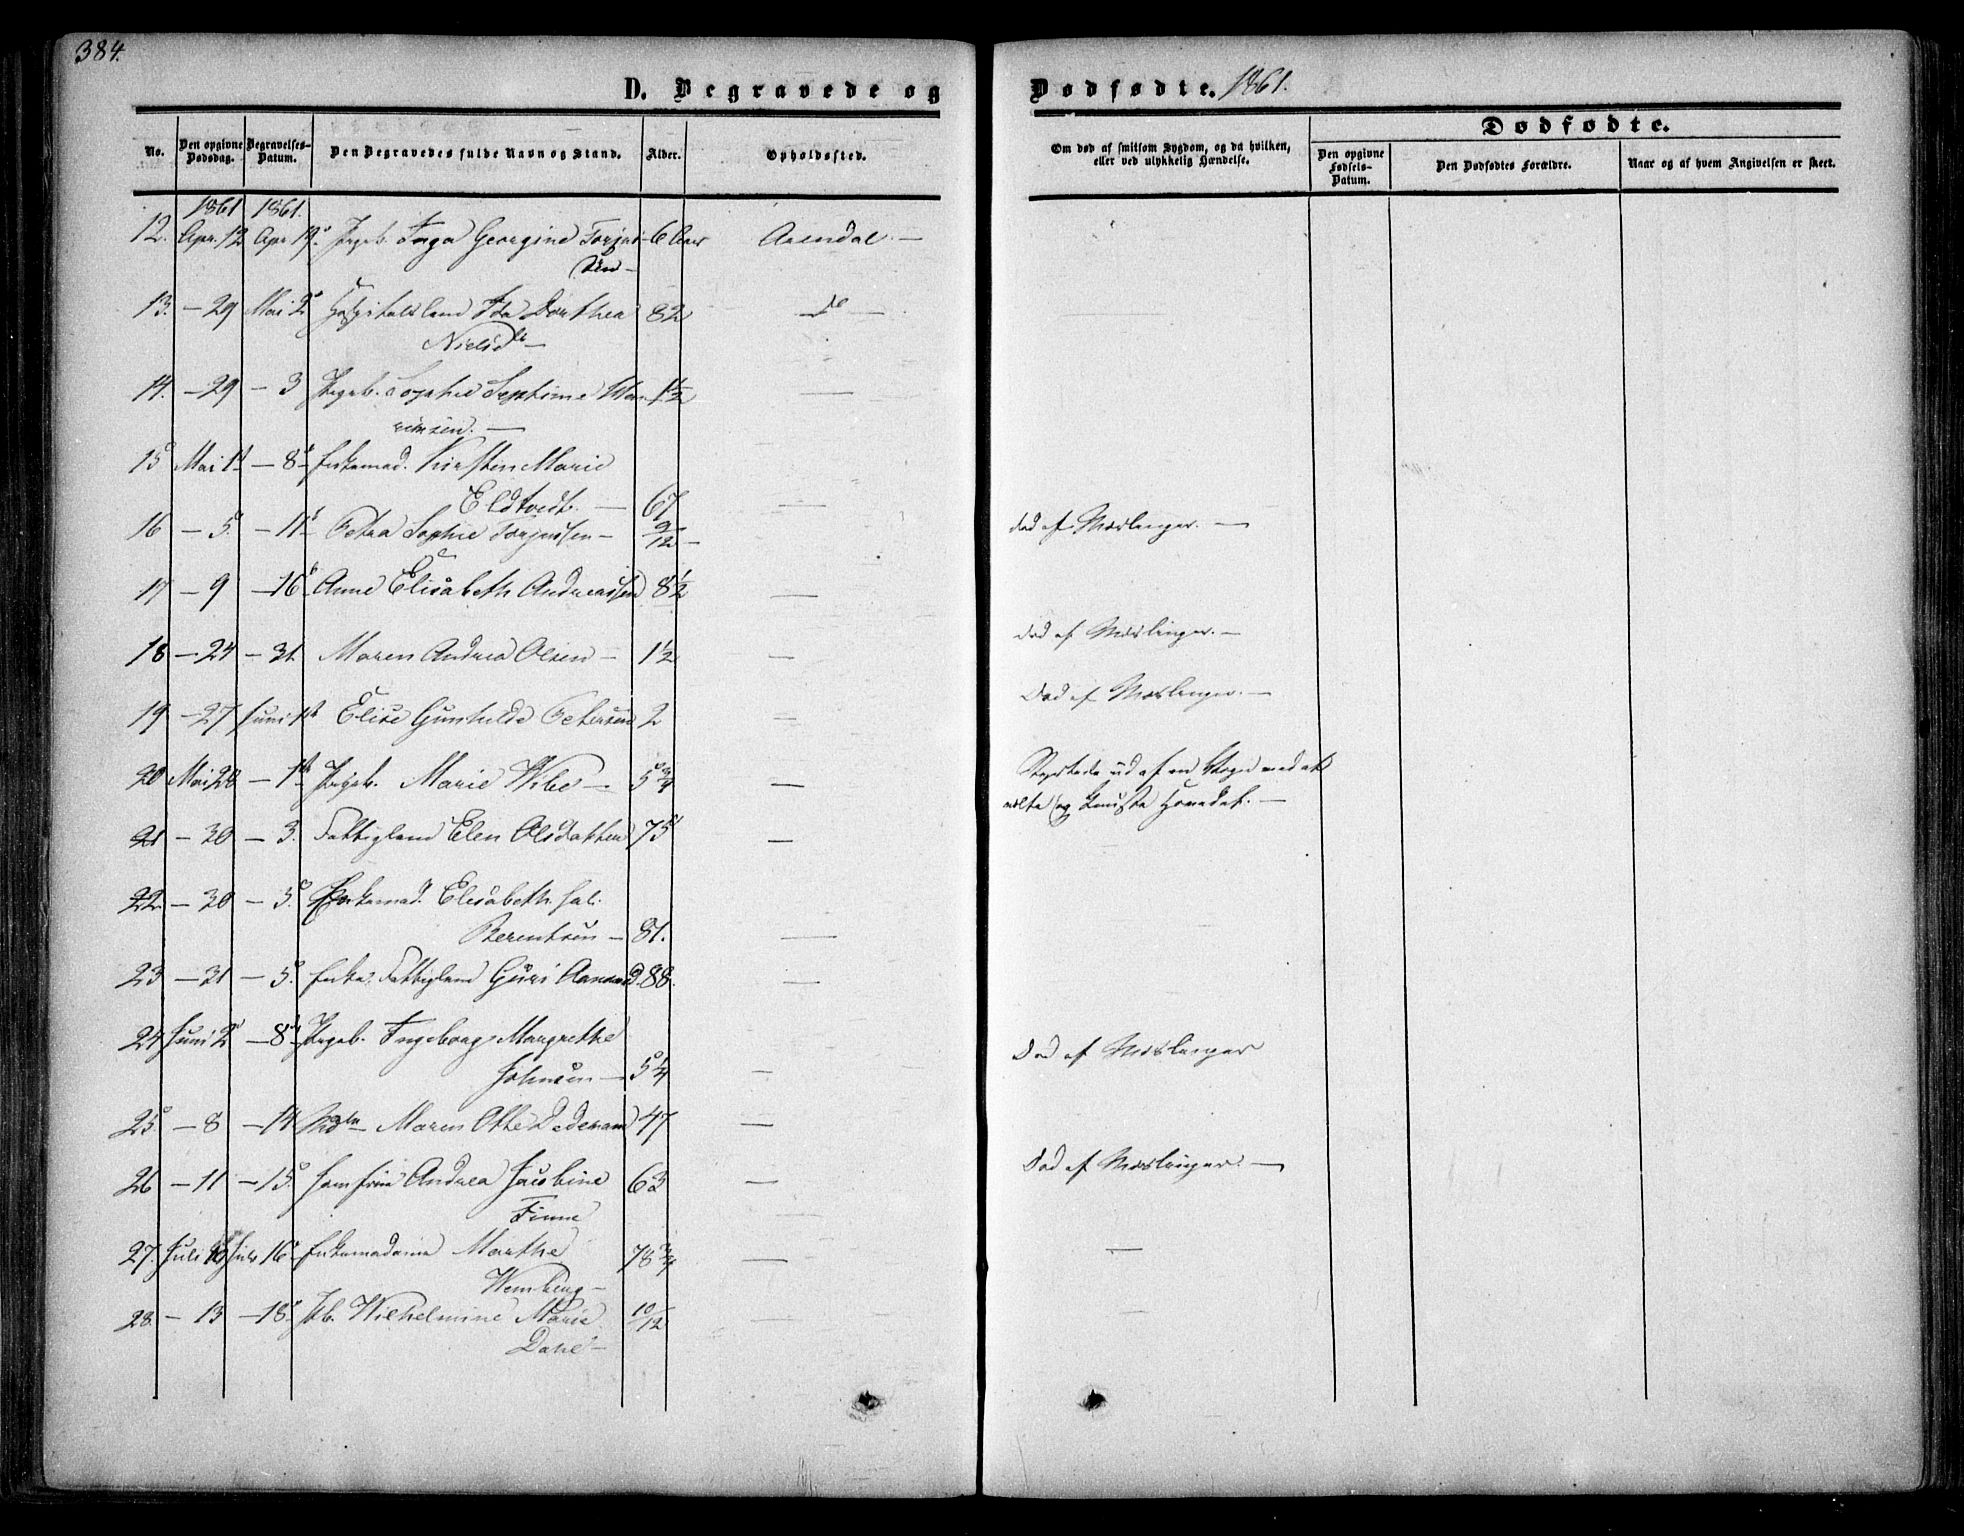 384.
D. Begravede og
Dødfødte. 1861.
No.
Den opgivne Dødsdag.
Begravelses-Datum.
Den Begravedes fulde Navn og Stand.
Alder.
Opholdssted.
Om død af smitsom Sygdom, og da hvilken, eller ved ulykkelig Hændelse.
Dødfødte.
Den opgivne Fødsels-Datum.
Den Dødfødtes Forældre.
Naar og af hvem Angivelsen er skeet.
1861 1861.
12. Apr. 12 Apr. 19 Pigeb. Inga Georgine Torjus- 6 Aar Arendal. —
sen —
13. — 29 Mai 2 Hospitalslem Ida Dorthea 82 — do —
Nielsd. —
14. — 29 — 3 Pigeb. Sophie Septime 1 1/2 —
15 Mai 1 — 8 Enkemad. Kirsten Marie
Eldtvedt. — 67 —
16 — 5. — 11 Petra Sophie Torjussen — 9/12 — Død af Mæslinger. —
17 — 9 — 16 Anne Elisabeth Andreassen 8 1/2 —
18 — 24 — 31 Maren Andrea Olsen — 1 1/2 — Død af Mæslinger. —
19 — 27 Juni 1 Elise Gunhilde Petersen 2 — Død af Mæslinger. —
20 Mai 28 — 1 Pigeb. Marie Wibe — 5 3/4 — Styrtede ud af en Vogn med at
vælte og knuste Hovedet. —
21 — 30 — 3. Fattiglem Elen Olsdatter 75 —
22 — 30 — 5. Enkemad. Elisabeth
Berentsen — 81. —
23 — 31 — 5. Enke, Fattiglem Guri 88. —
24 Juni 2 — 8 Pigeb. Ingeborg Margrethe
Johnsen — 5 1/4 — Død af Mæslinger
25. — 8 — 14 Maren Otte Dedekam 47 —
26 — 11 — 15. Jomfrue Andrea Jacobine 63 — Død af Mæslinger. —
Finne
27. Juli Juli 16 Enkemadame Marthe 78 3/4 — —
—
28. — 13 — 18. Pb. Wilhelmine Marie 10/12 —
Dahl —